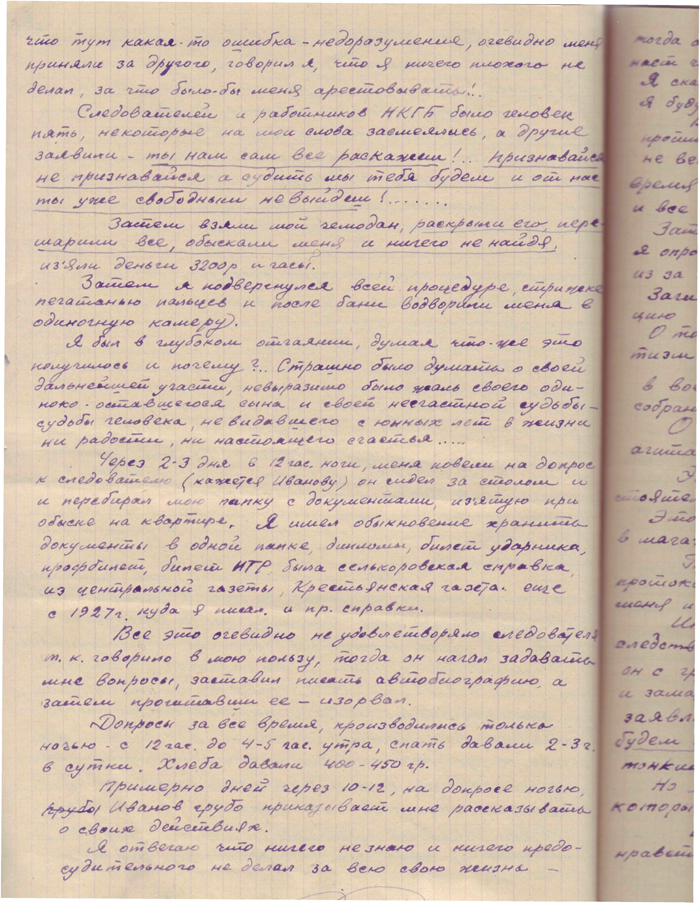 что тут какая-то ошибка - недоразумения, очевидно меня
приняли за другого, говорил я, что я ничего плохого не
делал, за что было-бы меня арестовывать!..
Следователей и работников НКГБ было человек
пять, некоторые на мои слова засмеялись, а другие
заявили - ты нам сам все раскажеш!.. Признавайся
не признавайся а судить мы тебя будем и от нас
ты уже свободным не выйдеш!.......
Затем взяли мой чемодан, раскрыли его, пере-
шарили все, обыскали меня и ничего не найдя,
из'яли деньги 3200р и часы.
Затем я подвергнулся всей процедуре, стрижке
печатанью пальцев и после бани водворили меня в
одиночную камеру).
Я был в глубоком отчаянии, думая что-же это
получилось и почему?.. Страшно было думать о своей
дальнейшей участи, невыразимо было жаль своего оди-
ноко-оставшегося сына и своей несчастной судьбы-
судьбы человека, не видавшего с юнных лет в жизни
ни радости, ни настоящего счастья.....
Через 2-3 дня в 12 час. ночи, меня повели на допрос
к следователю (кажется Иванову) он сидел за столом и
и перебирал мою папку с документами, из'ятую при
обыске на квартире. Я имел обыкновение хранить
документы в одной папке, дипломы, билет ударника,
профбилет, билет ИТР, была селькоровская справка,
из центральной газеты, Крестьянская газета. еще
с 1927г. куда я писал. и пр. справки.
Все это очевидно не удовлетворяло следователя
т.к. говорило в мою пользу, тогда он начал задавать
мне вопросы, заставил писать автобиографию, а
затем прочитавши ее - изорвал.
Допросы за все время, производились только
ночью - с 12 час. до 4-5 час. утра, спать давали 2-3 ч.
в сутки. Хлеба давали 400-450 гр.
Примерно дней через 10-12, на допросе ночью,
грубо Иванов грубо приказывает мне рассказывать
о своих действиях.
Я отвечаю что ничего не знаю и ничего предо-
судительного не делал за всю свою жизнь -
тогда
Я ска
Я буд
не ве
время
и все
Зат
я опро
из за
цию
О то
тизм
в во
собран
О
агита
стояте
Это
в мага
проток
меня и
следств
он с гр
и зама
заявл
будем
тонки
Но -
которы
нравст